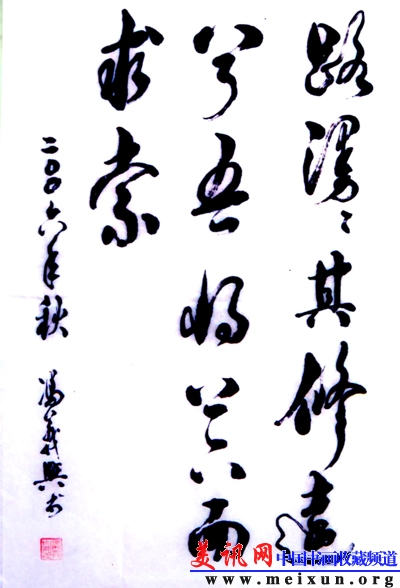 路漫々其修遠
兮吾将上下而
求索
二〇〇六年秋 馮義興书
美讯网 中国书画收藏频道
www.meixun.org